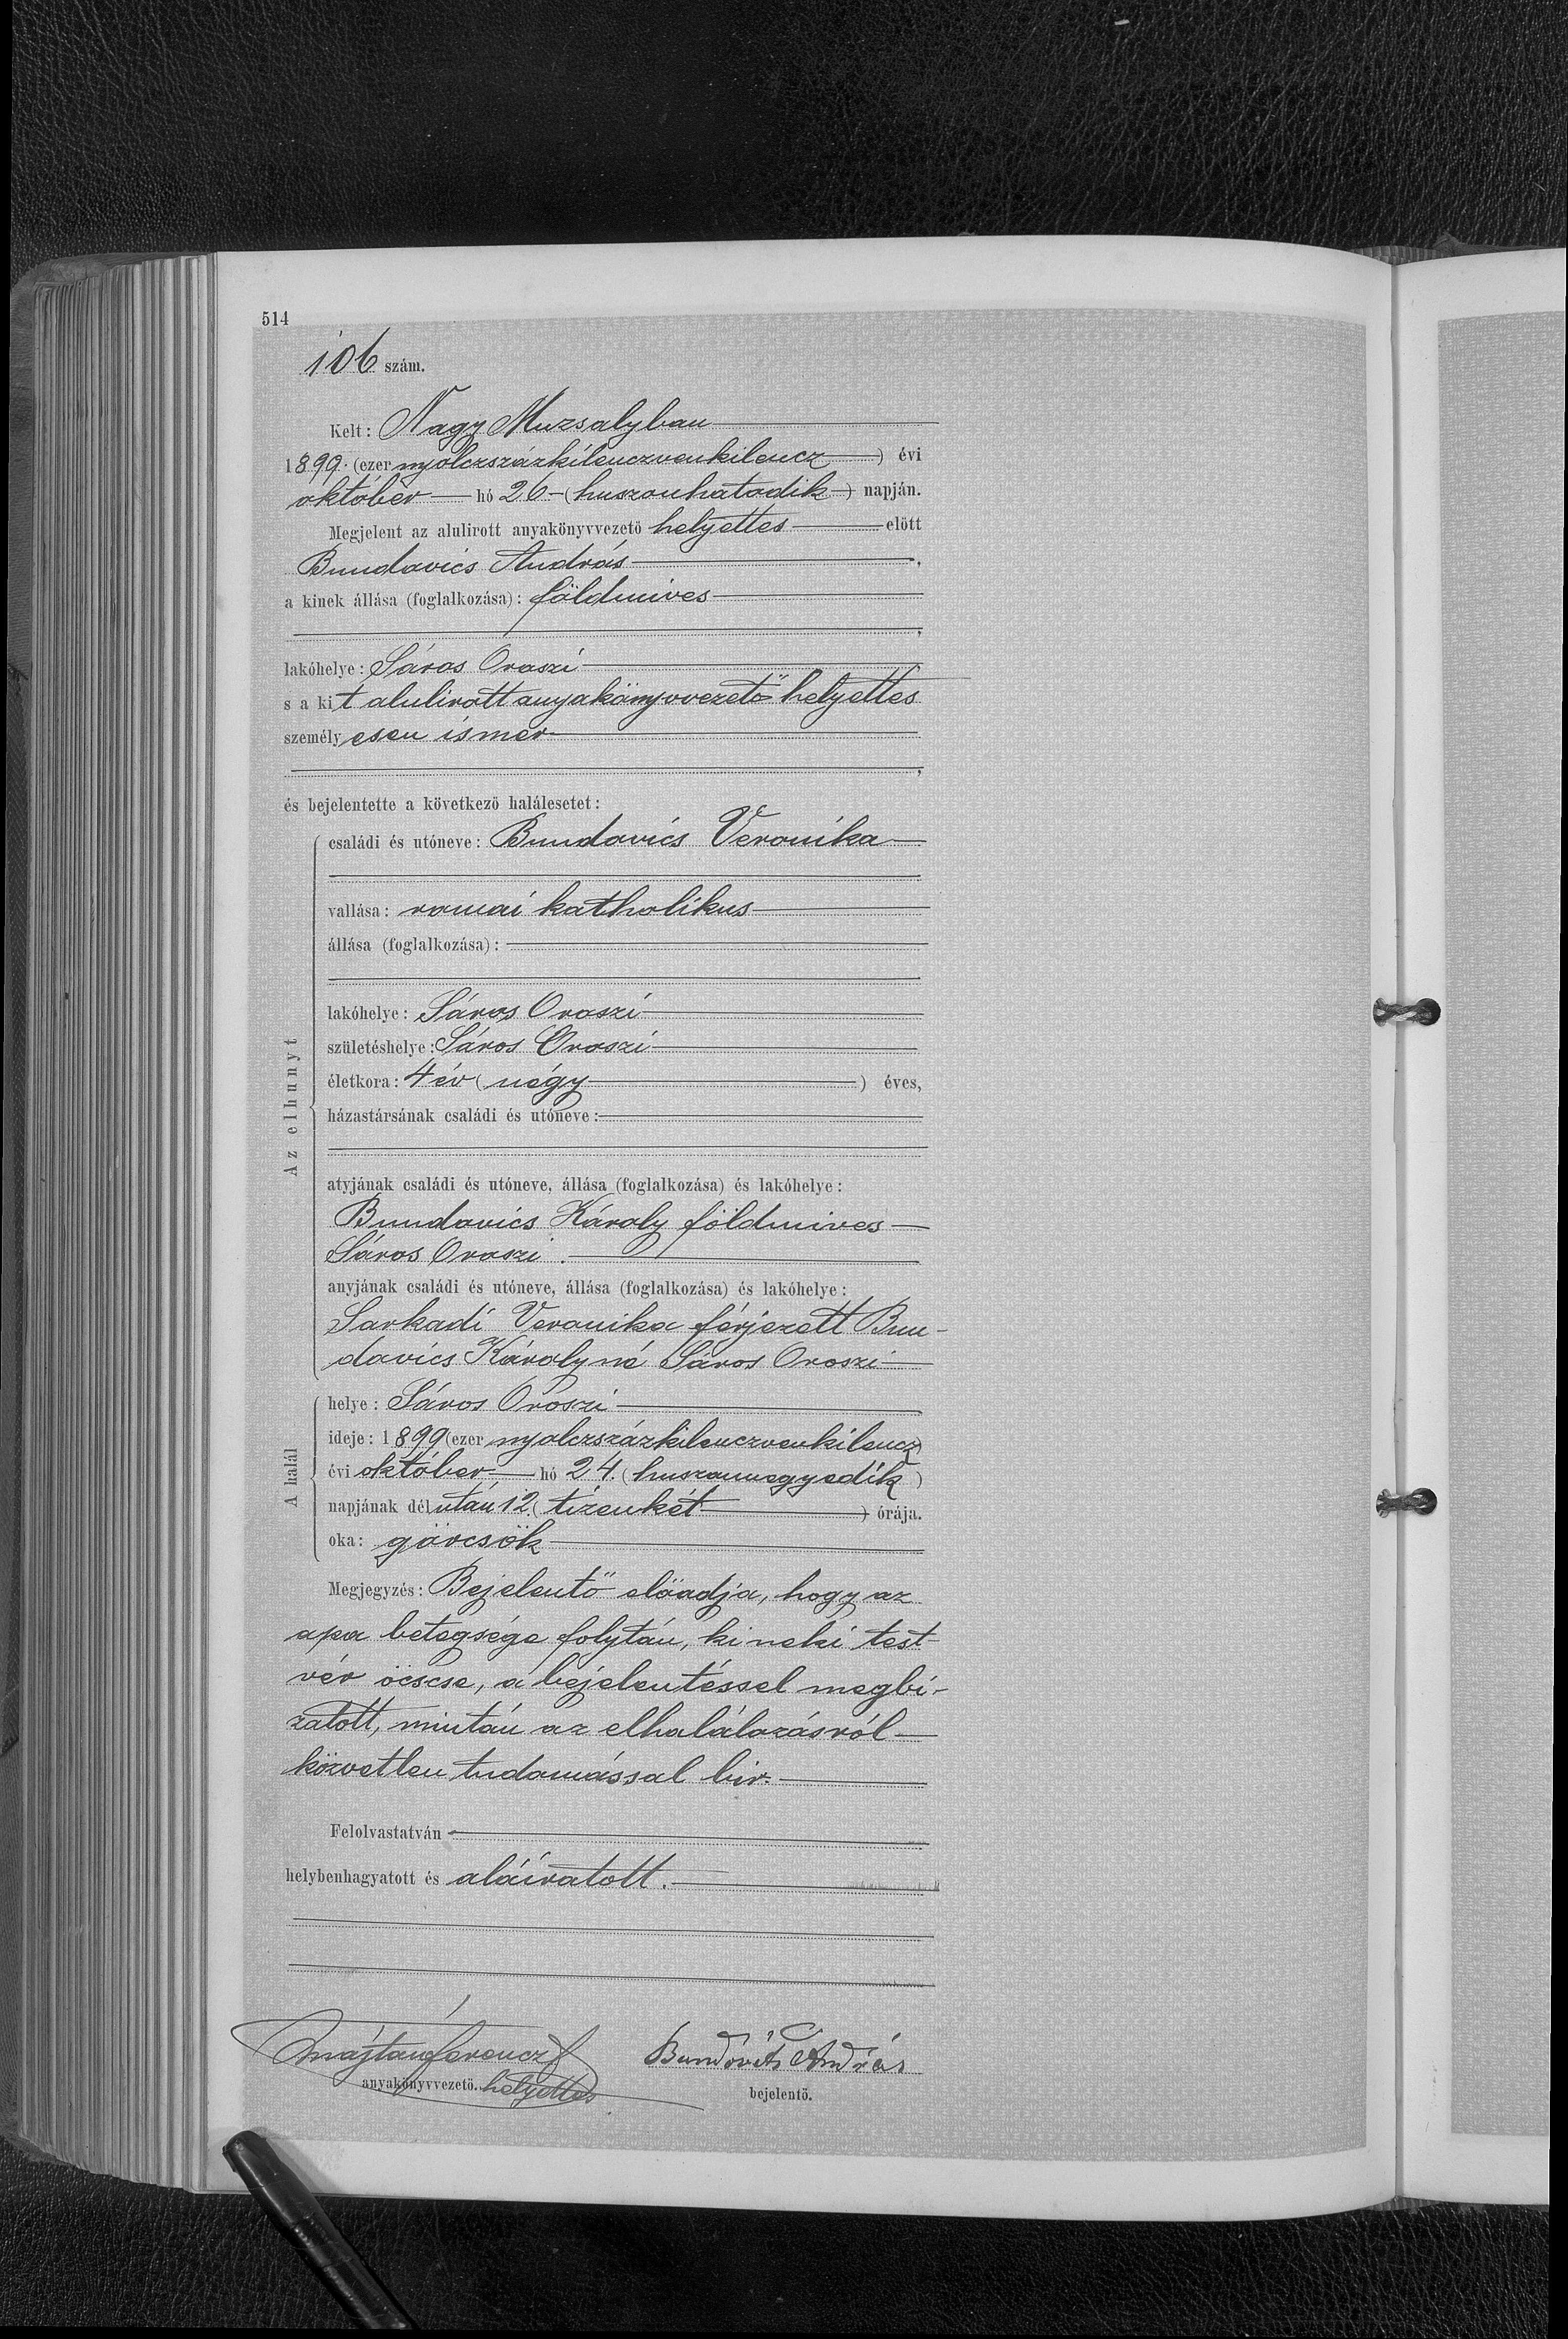 514
106 szám.
Kelt: Nagy Muzsalyban
1899. (ezer nyolczszázkilenczvenkilencz) évi
október hó 26 (huszonhatodik) napján.
Megjelent az alulirott anyakönyvvezető helyettes előtt
Bundavics András,
a kinek állása (foglalkozása): földmives
,
lakóhelye: Sáros Oroszi
s a kit alulirott anyakönyvvezető helyettes
személyesen ismer
,
és bejelentette a következő halálesetet:
családi és utóneve: Bundovics Veronika
vallása: romai katholikus
állása (foglalkozása):
lakóhelye: Sáros Oroszi
születéshelye: Sáros Oroszi
életkora: 4 év (négy) éves,
házastársának családi és utóneve:
Az elhunyt
atyjának családi és utóneve, állása (foglalkozása) és lakóhelye:
Bundovics Károly földmives
Sáros Oroszi.
anyjának családi és utóneve, állása (foglalkozása) és lakóhelye:
Sarkadi Veronika férjezett Bun-
davics Károlyné Sáros Oroszi
helye: Sáros Oroszi
ideje: 1899 (ezer nyolczszázkilenczvenkilencz)
évi október hó 24. (huszonnegyedik)
A halál
napjának dél után 12. (tizenkét) órája.
oka: görcsök
Megjegyzés: Bejelentő előadja, hogy az
apa betegsége folytán, ki neki test-
vér öcscse, a bejelentéssel megbi-
zatott, miután az elhalálozásról
közvetlen tudomással bir.
Felolvastatván
helybenhagyatott és aláiratott.
Ferencz Bundovits András
anyakönyvvezető. helyettes bejelentő.